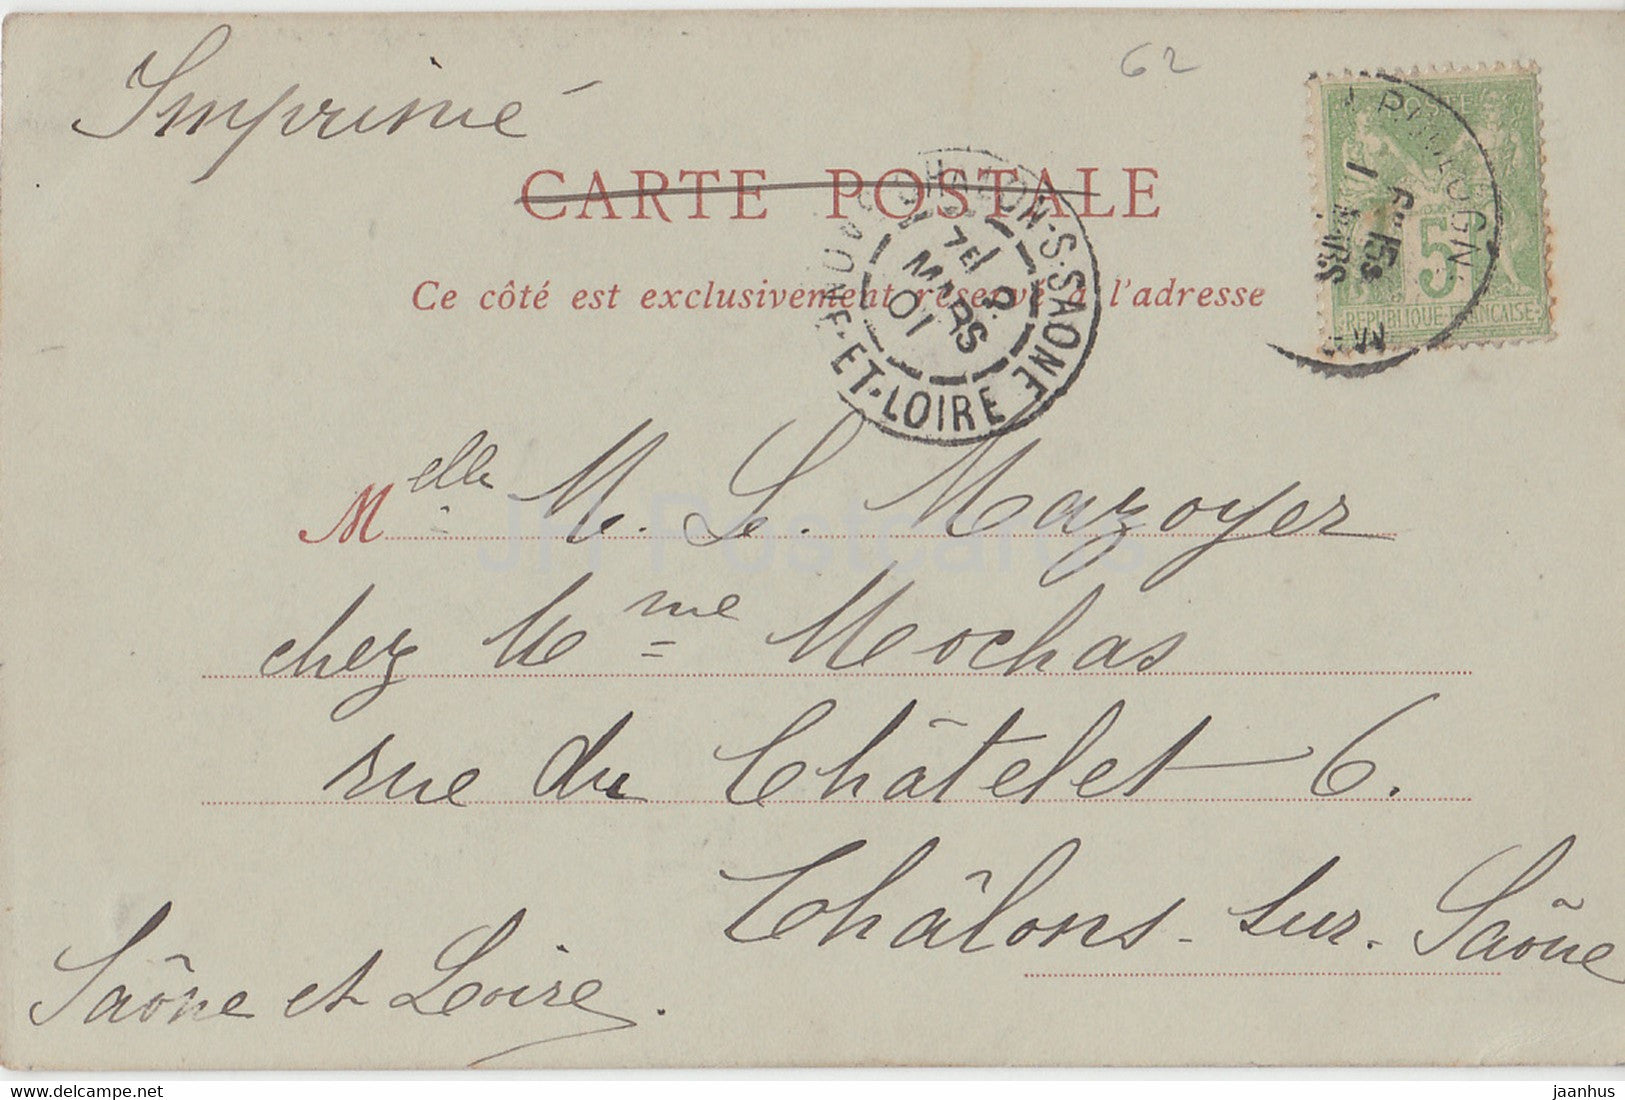 62
Imprimé
POSTE
5
REPUBLIQUE FRANÇAISE
MARS
CARTE POSTALE
CHALON-S-SAONE
MARS
01
ET-LOIRE
Ce côté est exclusivement réservé à l'adresse
Melle M. L. Mazoyer
chez Mme Mochas
rue du Châtelet 6.
Châlons-sur-Saône
Saône et Loire.
JH Postcards
www.delcampe.net
jaanhus